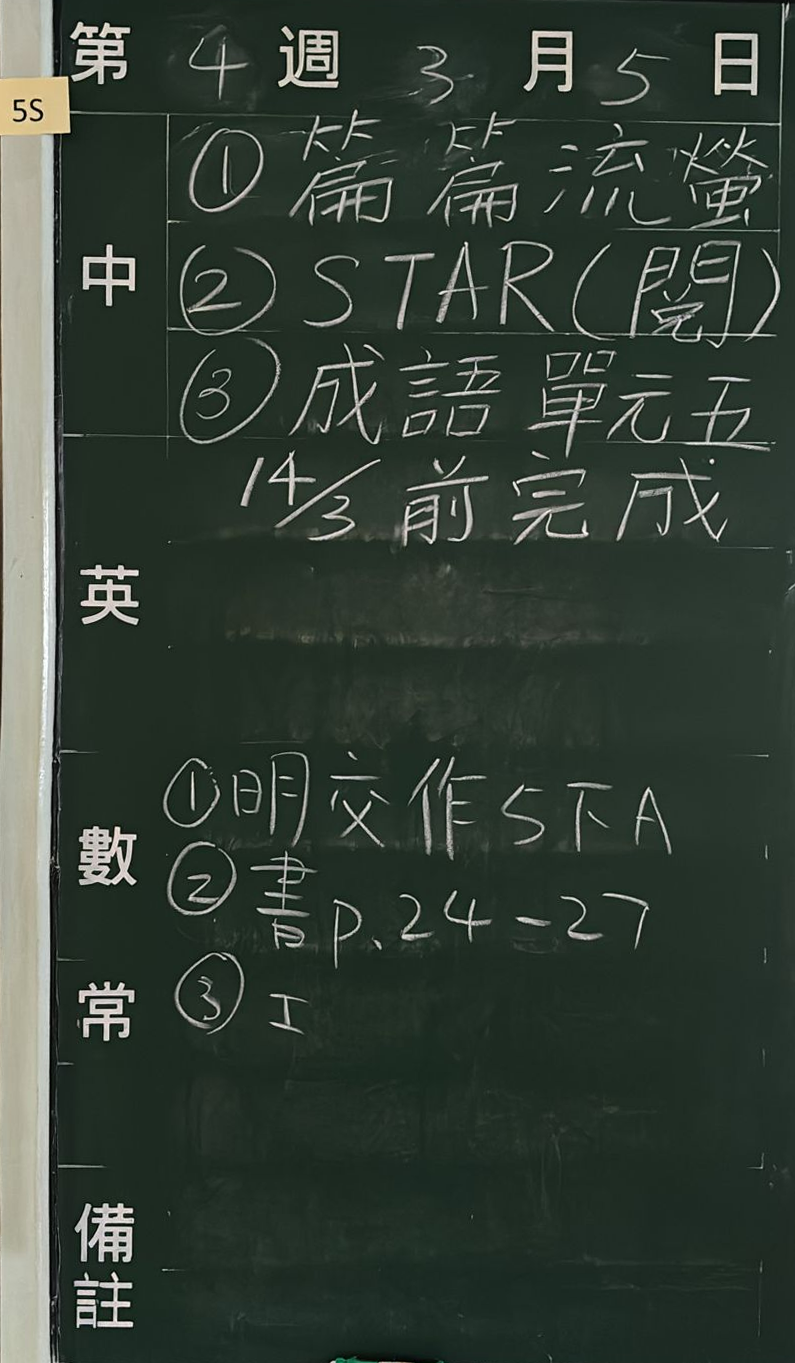 第 4 週 3 月 5 日
5S
中
① 篇篇流螢
② STAR(閱)
③ 成語單元五
14/3 前完成
英
數
① 明交作5下A
② 書p.24-27
常
③ 工
備註